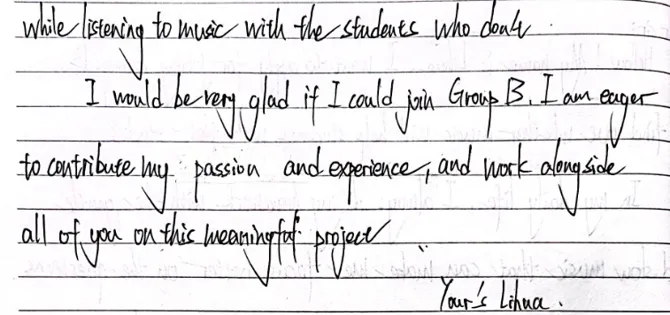 while listening to music with the students who don't.
I would be very glad if I could join Group B. I am eager
to contribute my passion and experience, and work alongside
all of you on this meaningful project
Your's Lihua.